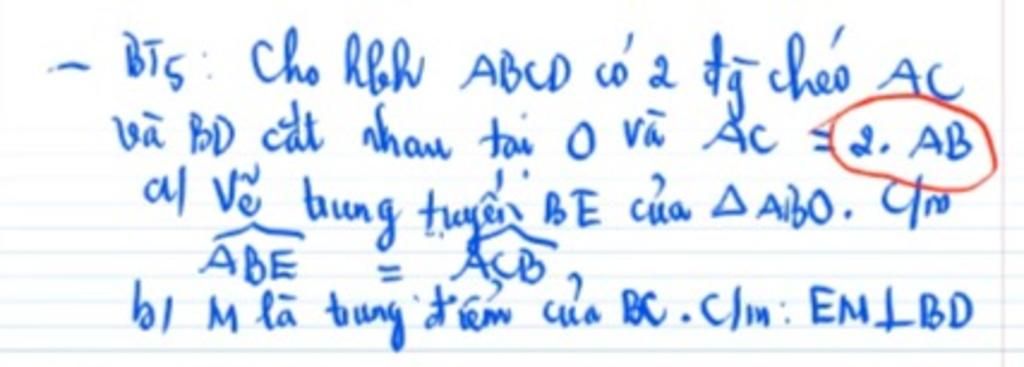 - BT5: Cho hbh ABCD có 2 đg chéo AC
và BD cắt nhau tại O và AC = 2. AB
a/ Vẽ trung tuyến BE của △ABO. C/m
ABE = ACB
b/ M là trung điểm của BC. C/m: EM⊥BD